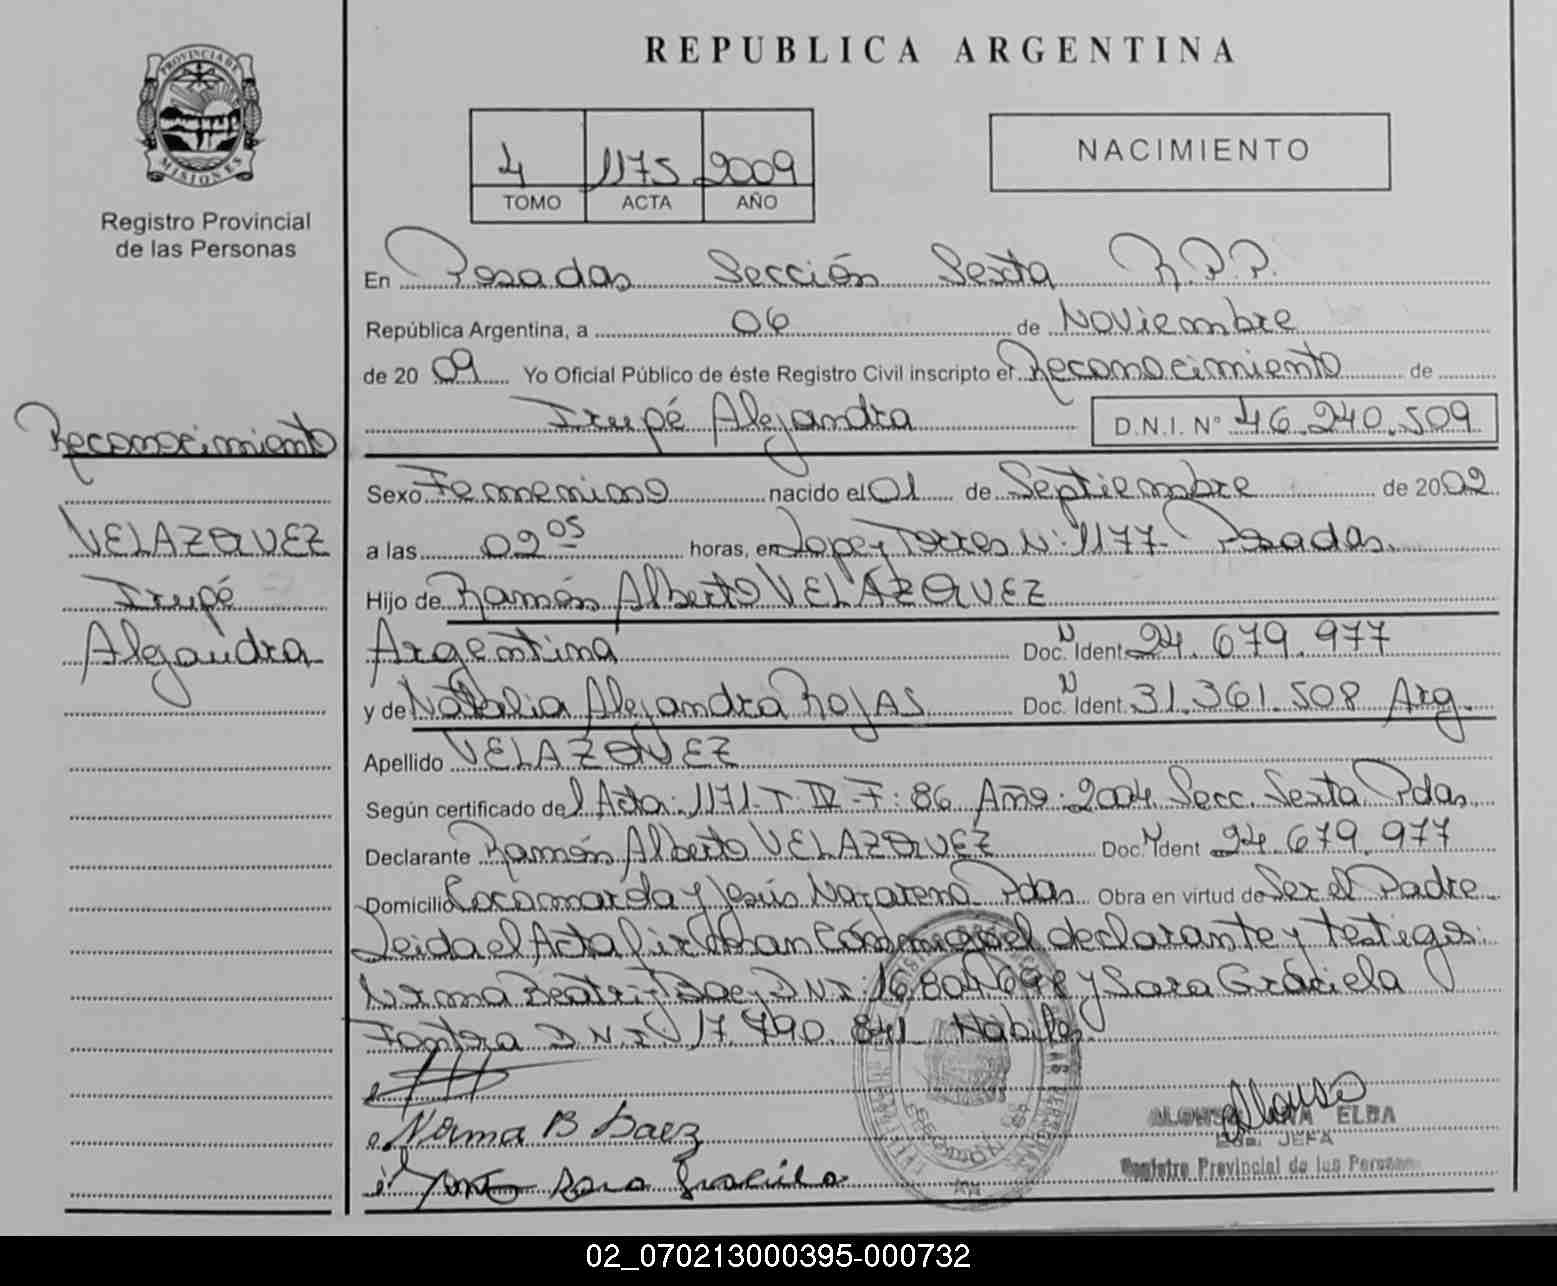 PROVINCIA DE
MISIONES
Registro Provincial
de las Personas
Reconocimiento
VELAZQUEZ
Irupé
Alejandra
REPUBLICA ARGENTINA
4 1175 2009
TOMO ACTA AÑO
NACIMIENTO
En Posadas Sección Sexta R.P.P.
República Argentina, a 06 de Noviembre
de 2009 Yo Oficial Público de éste Registro Civil inscripto el Reconocimiento de
Irupé Alejandra D.N.I. N° 46.240.509
Sexo Femenino nacido el 01 de Septiembre de 2002
a las 02 05 horas, en Lopez Torres N: 1177 Posadas.
Hijo de Ramón Alberto VELAZQUEZ
Argentina Doc. N Ident 24.679.977
y de Natalia Alejandra ROJAS Doc. N Ident. 31.361.508 Arg.
Apellido VELAZQUEZ
Según certificado del Acta: 1171-T-IV-F: 86 Año: 2004 Secc. Sexta Pdas
Declarante Ramón Alberto VELAZQUEZ Doc. N Ident 24.679.977
Domicilio Cocomarola y Jesús Nazareno Pdas Obra en virtud de Ser el Padre
Leida el Acta firman conmigo el declarante y testigos:
Norma Beatriz Baez DNI: 16.804.698 y Sara Graciela
D.N.I. 17.790.841 Habiles
Norma B Baez
Sara Graciela
ALONSO ANA ELBA
JEFA
Registro Provincial de las Personas
02_070213000395-000732